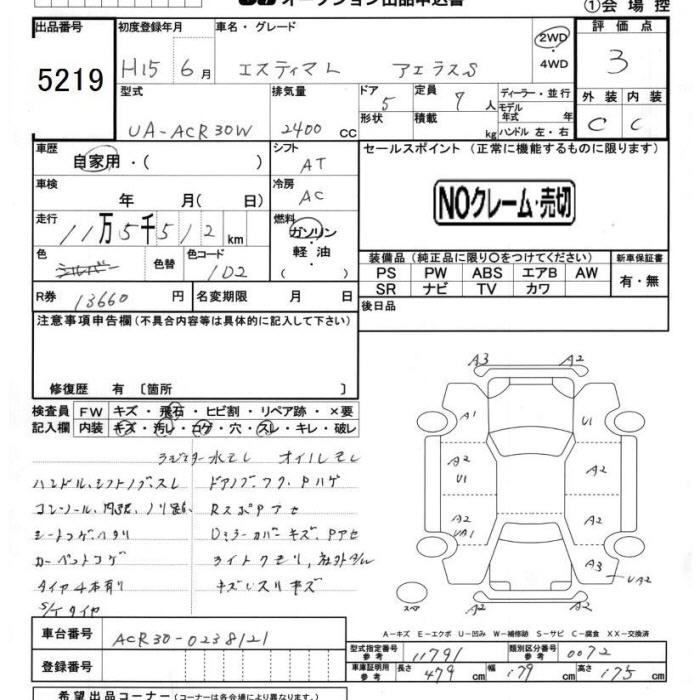 オークション出品申込書
①会場控
出品番号 初度登録年月 車名・グレード 評価点
5219 H15 6月 エスティマL アエラスS 2WD・4WD 3
型式 排気量 ドア 定員 ディーラー・並行 外装 内装
UA-ACR30W 2400cc 5 7人 モデル年式 年
形状 積載 kg ハンドル 左・右 C C
車歴 自家用・( ) シフト AT セールスポイント (正常に機能するものに限ります)
車検 年 月(日) 冷房 AC NOクレーム・売切
走行 11万5千512km 燃料 ガソリン・軽油・( )
色 シルバー 色替 色コード 1D2
装備品 (純正品に限り○をつけてください) 新車保証書
PS PW ABS エアB AW 有・無
SR ナビ TV カワ
R券 13660円 名変期限 月 日 後日品
注意事項申告欄 (不具合内容等は具体的に記入して下さい)
修復歴 有 [箇所 ]
検査員 FW キズ・飛石・ヒビ割・リペア跡・×要
記入欄 内装 キズ・汚れ・コゲ・穴・スレ・キレ・破レ
ラジエター水モレ オイルモレ
ハンドル、シフトノブスレ ドアノブ
シートコゲヘタリ
カーペットコゲ ライトクモリ、社外AW
タイヤ4本有り キズ
S/Tタイヤ
A3 A2
A1 U1
A2 A2
U1
A2 A2
UA1
A3 UA2
A2
スペア
A-キズ E-エクボ U-凹み W-補修跡 S-サビ C-腐食 XX-交換済
車台番号 ACR30-0238121
型式指定番号 参考 11791 類別区分番号 参考 0072
登録番号 車庫証明用 参考 長さ 479cm 幅 179cm 高さ 175cm
希望出品コーナー (コーナーは各会場により異なります)